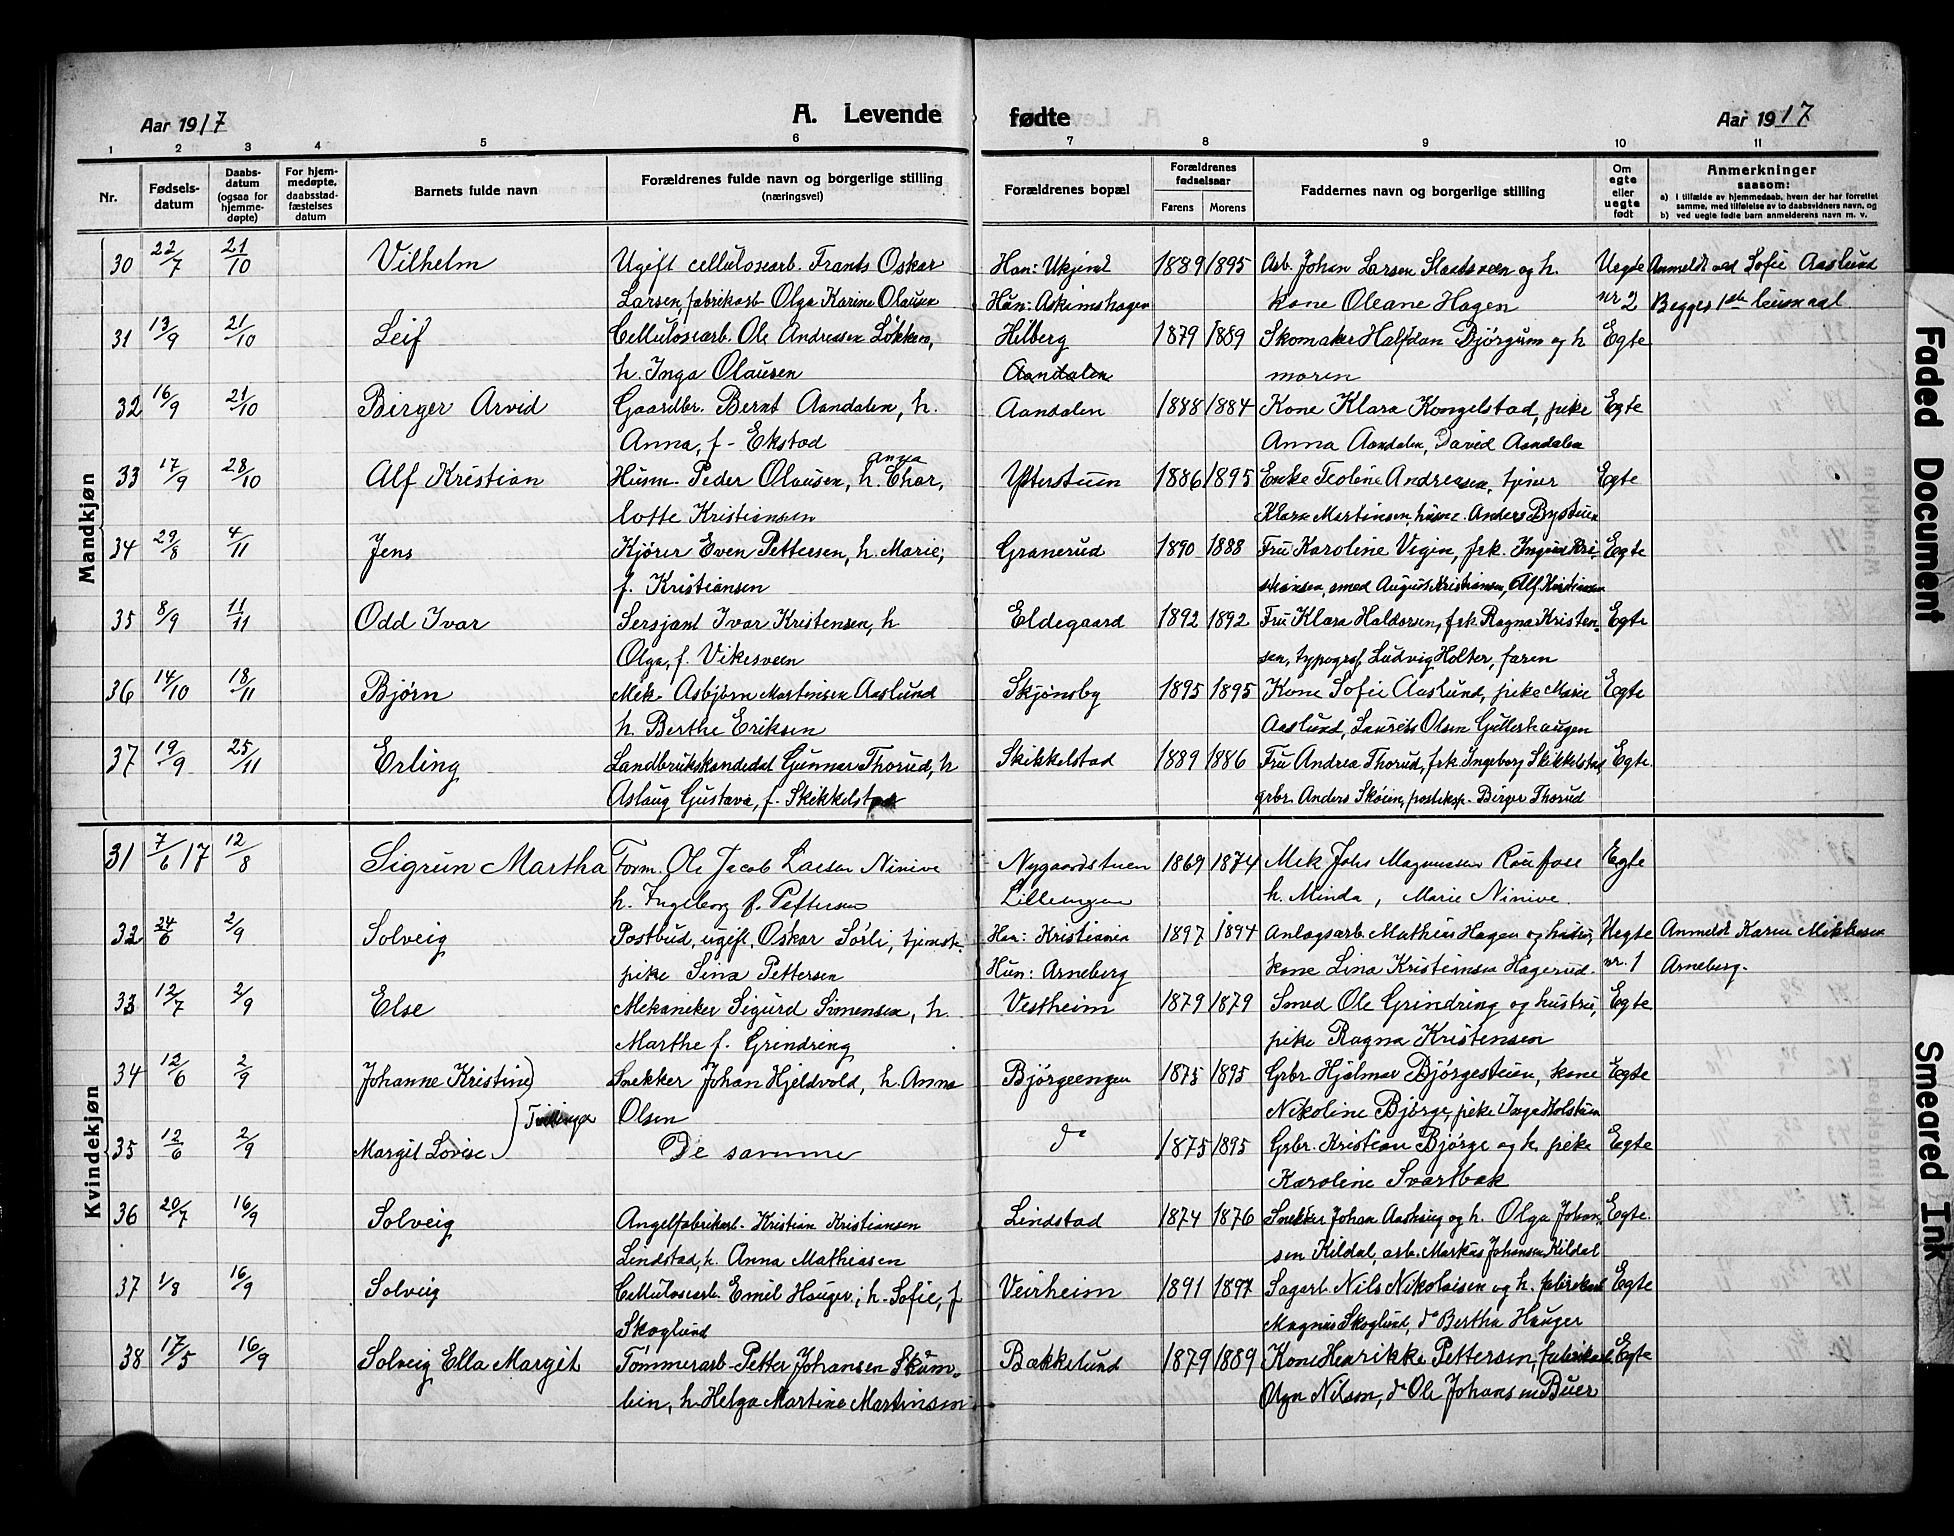 Aar 1917
A. Levende
fødte
Aar 1917
1 2 3 4 5 6 7 8 9 10 11
Nr.
Fødselsdatum
Daabsdatum (ogsaa for hjemmedøpte)
For hjemmedøpte, daabsstadfæstelses datum
Barnets fulde navn
Forældrenes fulde navn og borgerlige stilling (næringsvei)
Forældrenes bopæl
Forældrenes fødselsaar
Farens Morens
Faddernes navn og borgerlige stilling
Om egte eller uegte født
Anmerkninger saasom:
a) I tilfælde av hjemmedaab, hvem der har forrettet samme, med tilføielse av to daabsvidners navn, og
b) ved uegte fødte barn anmelderens navn m. v.
Mandkjøn
30 22/7 21/10 Vilhelm Ugift cellulosearb. Frants Oskar Han: Ukjent 1889 1895 Arb. Johan Larsen Slaatsveen og h. Uegte Anmeldt ved Sofie Aaslund
Larsen, fabrikarb Olga Karine Olausen Hun: Askimshagen kone Oleane Hagen nr 2 Begges 1ste leiermaal
31 13/9 21/10 Leif Cellulosearb. Ole Andreasen Løkken, Hilberg 1879 1889 Skomaker Halfdan Bjørgum og h Egte
h. Inga Olausen Aandalen moren
32 16/9 21/10 Birger Arvid Gaardbr. Bernt Aandalen, h. Aandalen 1888 1884 Kone Klara Kongelstad, pike Egte
Anna, f. Ekstad Anna Aandalen, David Aandalen
33 17/9 28/10 Alf Kristian Husm. Peder Olausen, h. Anna Char, Ytterstuen 1886 1895 Enke Teoline Andreasen, tjener Egte
lotte Kristiansen Klara Martinsen, husm. Anders Bystuen
34 29/8 4/11 Jens Kjører Even Pettersen, h. Marie, Granerud 1890 1888 Fru Karoline Vigin, frk. Ingrid Kri- Egte
f. Kristiansen stiansen, smed August Kristiansen, Alf Kristiansen
35 8/9 11/11 Odd Ivar Sersjant Ivar Kristensen, h Eldegaard 1892 1892 Fru Klara Haldorsen, frk. Ragna Kristen- Egte
Olga, f. Vikesveen sen, typograf Ludvig Holter, faren
36 14/10 18/11 Bjørn Mek. Asbjørn Martinsen Aaslund Skjønsby 1895 1895 Kone Sofie Aaslund, pike Marie Egte
h. Berthe Eriksen Aaslund, Laurits Olsen Gutterhaugen
37 19/9 25/11 Erling Landbrukskandidat Gunnar Thorud, h Skikkelstad 1889 1886 Fru Andrea Thorud, frk Ingeborg Skikkelstad, Egte
Aslaug Gustava, f. Skikkelstad grbr. Anders Skøien, posteksp. Birger Thorud
Kvindekjøn
31 7/6 17 12/8 Sigrun Martha Form. Ole Jacob Larsen Ninive Nygaardstuen 1869 1874 Mek Johs Magnussen Raufoss Egte
h. Ingeborg f. Pettersen Lilleengen h. Minda, Marie Ninive.
32 24/6 2/9 Solveig Postbud, ugift, Oskar Sørli, tjeneste- Han: Kristiania 1897 1894 Anlagsarb. Mathius Hagen og hustru, Uegte Anmeldt Karen Mikkelsen
pike Lina Pettersen Hun: Arneberg kone Lina Kristiansen Hagerud. nr. 1 Arneberg.
33 12/7 2/9 Else Mekaniker Sigurd Simensen, h. Vestheim 1879 1879 Smed Ole Grindring og hustru, Egte
Marthe f. Grindring pike Ragna Kristensen
34 12/6 2/9 Johanne Kristine Snekker Johan Hjeldvold, h. Anna Bjørgeengen 1875 1895 Grbr. Hjalmar Bjørgestuen, kone Egte
Tvillinger Olsen Nikoline Bjørge, pike Inga Holstuen
35 12/6 2/9 Margit Lovise De samme do 1875 1895 Grbr. Kristian Bjørge og h. pike Egte
Karoline Svartbak
36 20/7 16/9 Solveig Angelfabrikarb. Kristian Kristiansen Lindstad 1874 1876 Snekker Johan Aashaug og h. Olga Johan- Egte.
Lindstad, h. Anna Mathiasen sen Kildal, arb. Markus Johansen Kildal
37 1/8 16/9 Solveig Cellulosearb. Emil Hauger, h. Sofie, f Veirheim 1891 1897 Sagarb. Nils Nikolaisen og h. fabrikarb Egte
Skoglund Magnus Skoglund, do Bertha Hauger
38 17/5 16/9 Solveig Ella Margit Tømmerarb. Petter Johansen Skum- Bakkelund 1879 1889 Kone Henrikke Pettersen, fabrikarb. Egte
lien, h. Helga Martine Martinsen Olga Nilsen, do Ole Johansen Buer
Faded Document
Smeared Ink